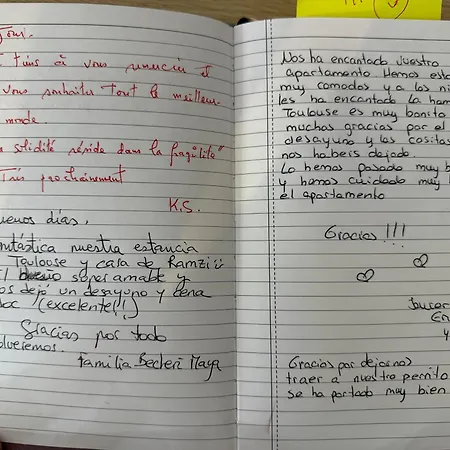 tiens à vous remercier et
vous souhaiter tout le meilleur
monde.
solidité réside dans la fragilité"
Très prochainement
K.S.
uenos días,
ntástica nuestra estancia
Toulouse y casa de Ramzi
súper amable y
os dejó un desayuno y cena
(excelente!!)
Gracias por todo
olveremos.
Familia Becteri Maya
Nos ha encantado vuestro
apartamento Hemos esta
muy comodos y a los ni
les ha encantado la ham
Toulouse es muy bonito
muchas gracias por el
desayuno y las cositas
nos habeis dejado.
Lo hemos pasado muy b
y hemos cuidado muy b
el apartamento
Gracias !!!
En
y
Gracias por dejarnos
traer a nuestro perrito
se ha portado muy bien